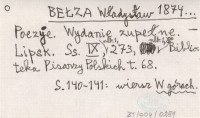 BEŁZA Władysław 1874...
Poezje. Wydanie zupełne.
Lipsk. Ss. IX, 273, Biblio
teka Pisarzy Polskich t. 68.
S. 140-141: wiersz W górach.